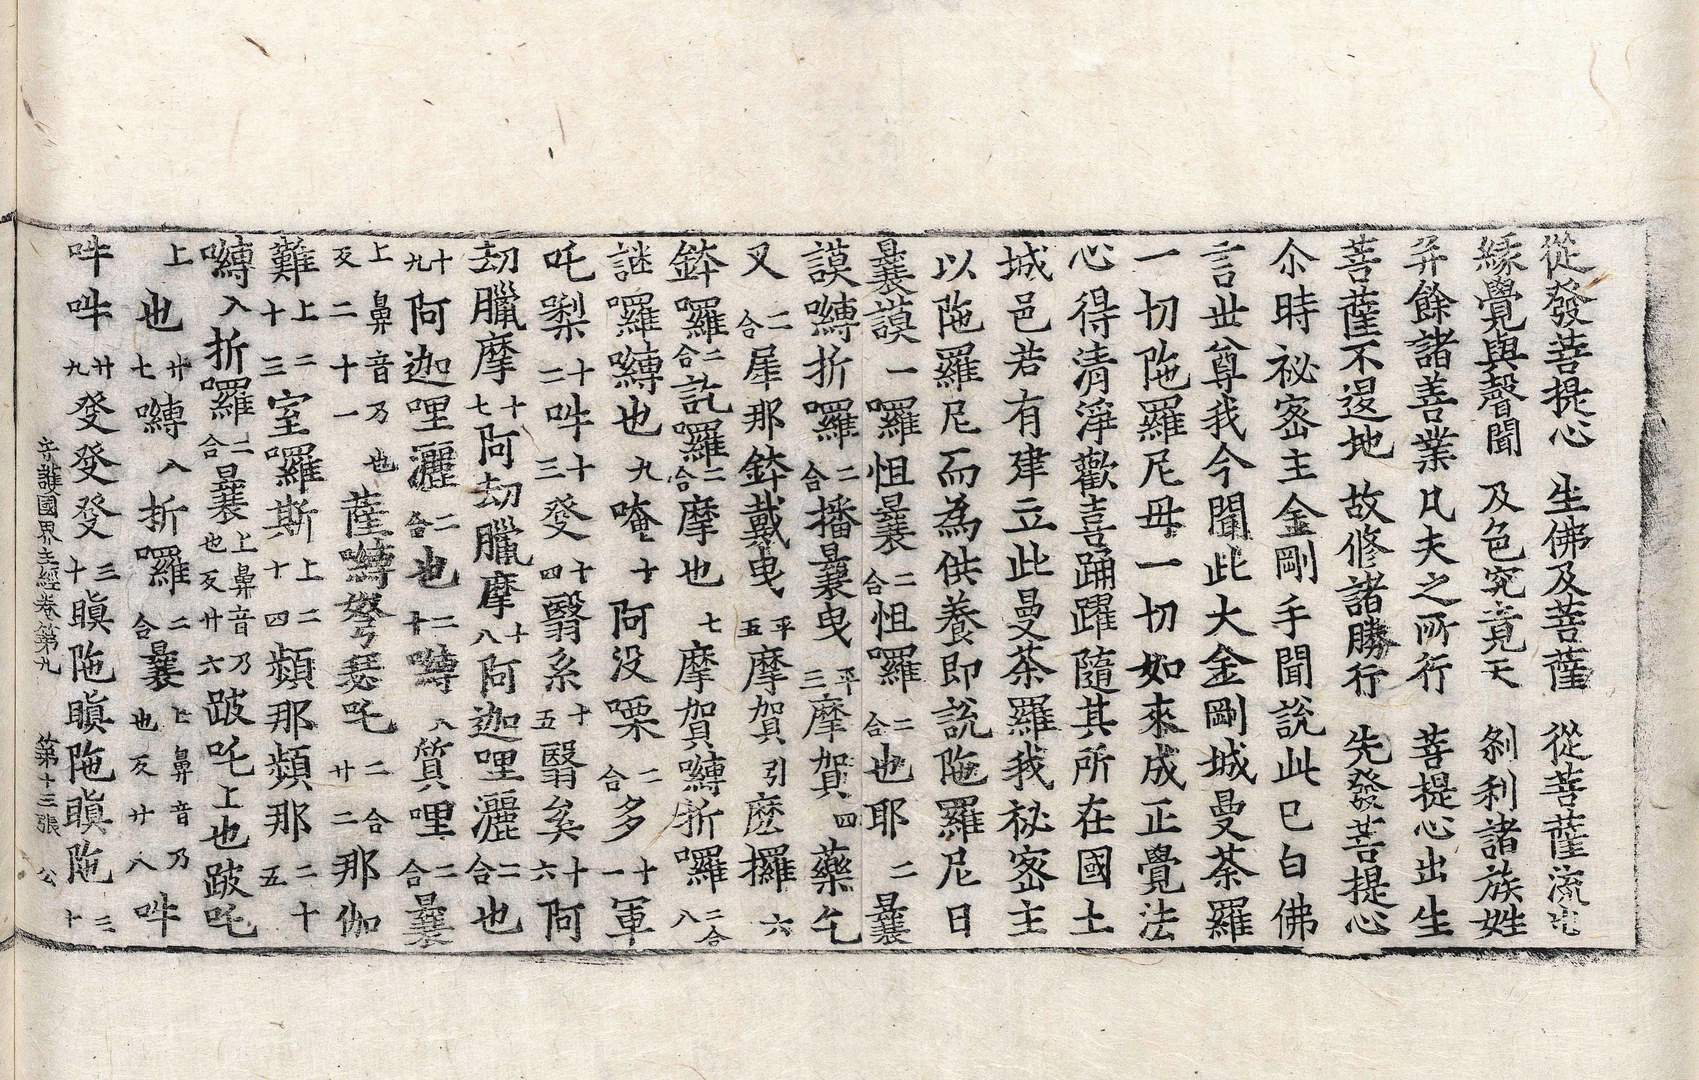 從發菩提心 生佛及菩薩 從菩薩流出
緣覺與聲聞 及色究竟天 剎利諸族姓
并餘諸善業 凡夫之所行 菩提心出生
菩薩不退地 故修諸勝行 先發菩提心
尒時祕密主金剛手聞說此已白佛
言世尊我今聞此大金剛城曼荼羅
一切陁羅尼毋一切如來成正覺法
心得清淨歡喜踊躍隨其所在國土
城邑若有建立此曼荼羅我祕密主
以陁羅尼而為供養即說陁羅尼曰
曩謨一囉怛曩二合怛囉二合也耶二曩
謨嚩折囉二合播曩曳平三摩賀四藥乞
叉二合犀那鉢戴曳平五摩賀引麼攞六
鉢囉二合訖囉二合摩也七摩賀嚩折囉二合八
謎囉嚩也九唵十阿没㗚二合多十一軍
吒㘑十二吽十三發十四翳系十五翳矣十六阿
刧臘摩十七阿刧臘摩十八阿迦哩灑二合也
十九阿迦哩灑二合也二十嚩入質哩二合曩
上鼻音乃也反二十一薩嚩弩瑟吒二合廿二那伽
難上二十三室囉斯上二十四頻那頻那二十五
嚩入折囉二合曩上鼻音乃也反廿六跛吒上也跛吒
上也廿七嚩入折囉二合曩上鼻音乃也反廿八吽
吽吽廿九發發發三十瞋陁瞋陁瞋陁三十
守護國界主經卷第九 第十三張 公